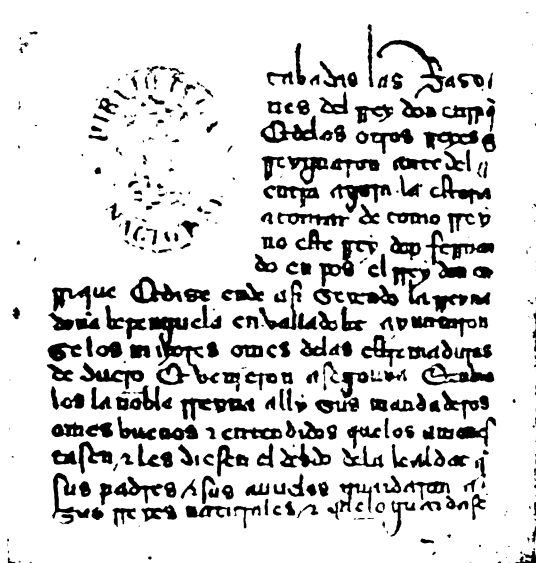 BIBLIOTECA
NACIONAL
cabadas las Rasoi
nes del rrey don enrriq
E delos otros rreyes q
rreygnaron ante del
enta agora la estoria
a contar de como rrey
no este rrey don fernan
do en pos el rrey don en
rrique E dise ende asi Seyendo la rreyna
doña berenguela en valladolit ayuntaron
se los mayores omes delas estremaduras
de duero E venieron a segouia E enbio
los la noble rreyna ally sus mandaderos
omes buenos z entendidos que los amones
tasen, z les diesen el debdo dela lealdat q
sus padres z sus auuelos guardaron a
sus rreyes naturales, z que lo guardase